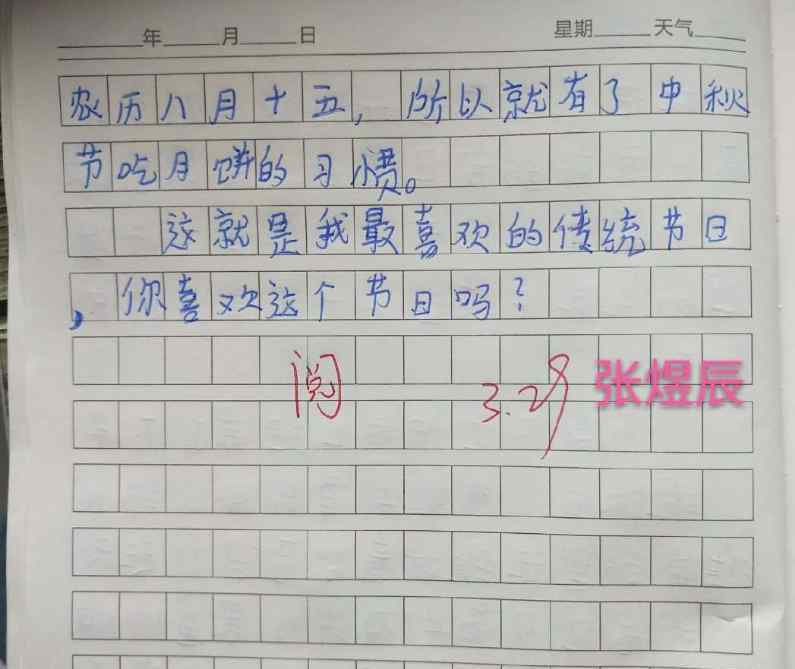 年 月 日 星期 天气
农历八月十五,所以就有了中秋
节吃月饼的习惯。
这就是我最喜欢的传统节日
,你喜欢这个节日吗?
阅 3.29 张煜辰